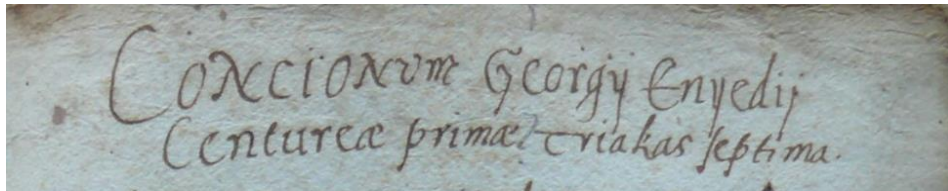 CONCIONVm Georgij Enyedij
Centureæ primæ Triakas septima.